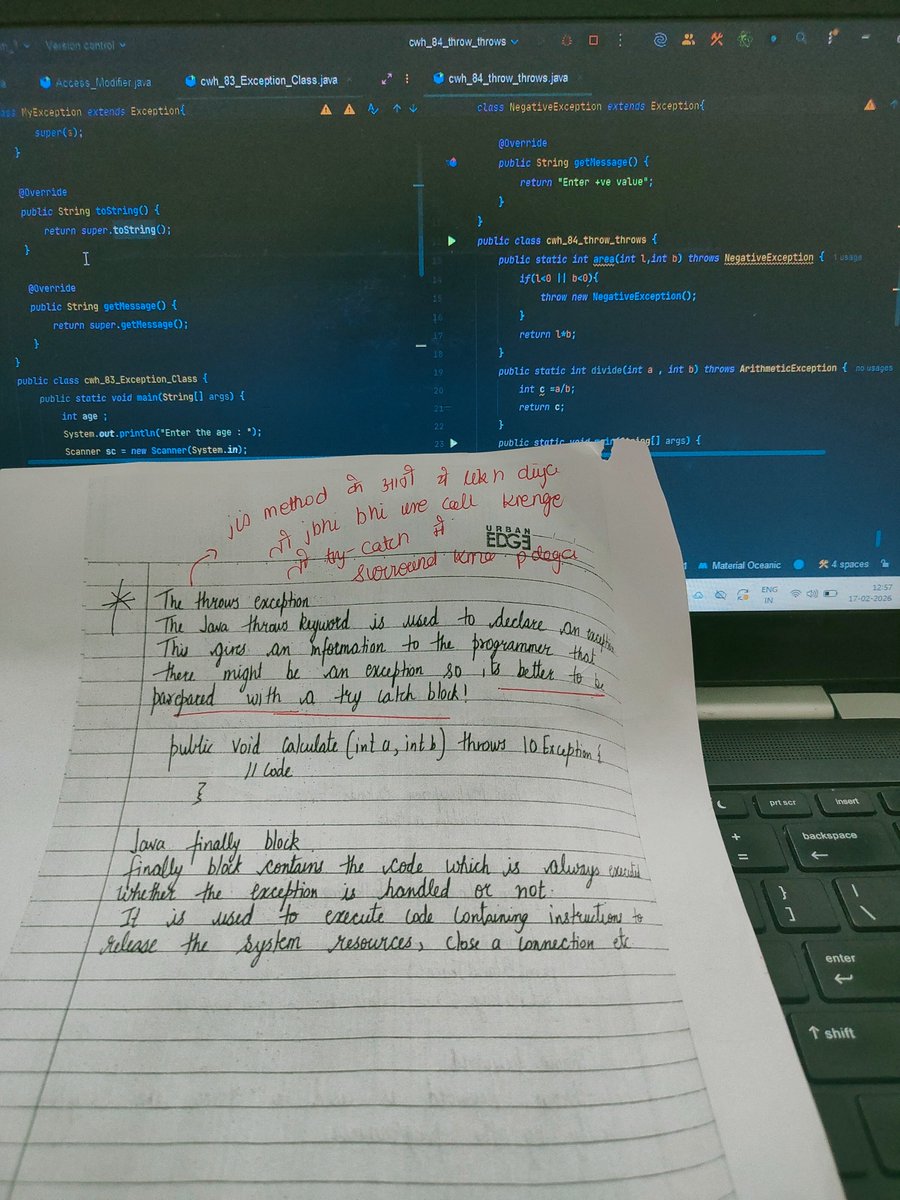 Version control
cwh_84_throw_throws
Access_Modifier.java
cwh_83_Exception_Class.java
cwh_84_throw_throws.java
MyException extends Exception{
super(s);
}
@Override
public String toString() {
return super.toString();
}
@Override
public String getMessage() {
return super.getMessage();
}
}
public class cwh_83_Exception_Class {
public static void main(String[] args) {
int age ;
System.out.println("Enter the age : ");
Scanner sc = new Scanner(System.in);
class NegativeException extends Exception{
@Override
public String getMessage() {
return "Enter +ve value";
}
}
public class cwh_84_throw_throws {
13 public static int area(int l,int b) throws NegativeException { 1 usage
14 if(l<0 || b<0){
15 throw new NegativeException();
16 }
17 return l*b;
18 }
19 public static int divide(int a , int b) throws ArithmeticException { no usages
20 int c =a/b;
21 return c;
22 }
23 public static void main(String[] args) {
Material Oceanic 4 spaces
ENG
IN
12:57
17-02-2026
jis method के आगे ये diya
तो jbhi bhi use call krenge
तो try-catch में
surround krna pdega
URBAN
EDGE
The throws exception
The Java throws keyword is used to declare an exception
This gives an information to the programmer that
there might be an exception so its better to be
parepared with a try catch block!
public void calculate (int a, int b) throws IO Exception {
// Code
}
Java finally block
finally block contains the code which is always executed
whether the exception is handled or not.
It is used to execute code containing instructions to
release the system resources, close a connection etc
prt scr
insert
+
=
backspace
}
]
|
\
enter
shift